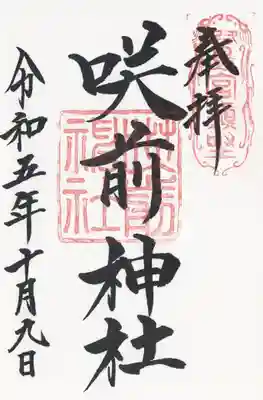 奉拝
咲前神社
令和五年十月九日